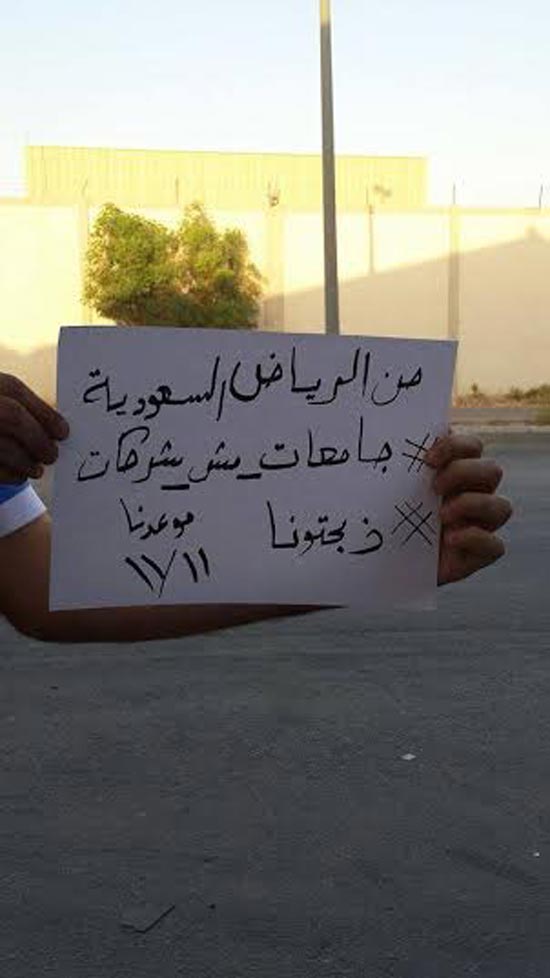 من الرياض/السعودية
#جامعات_مش_شركات
#ذبحتونا
موعدنا
١١/١١